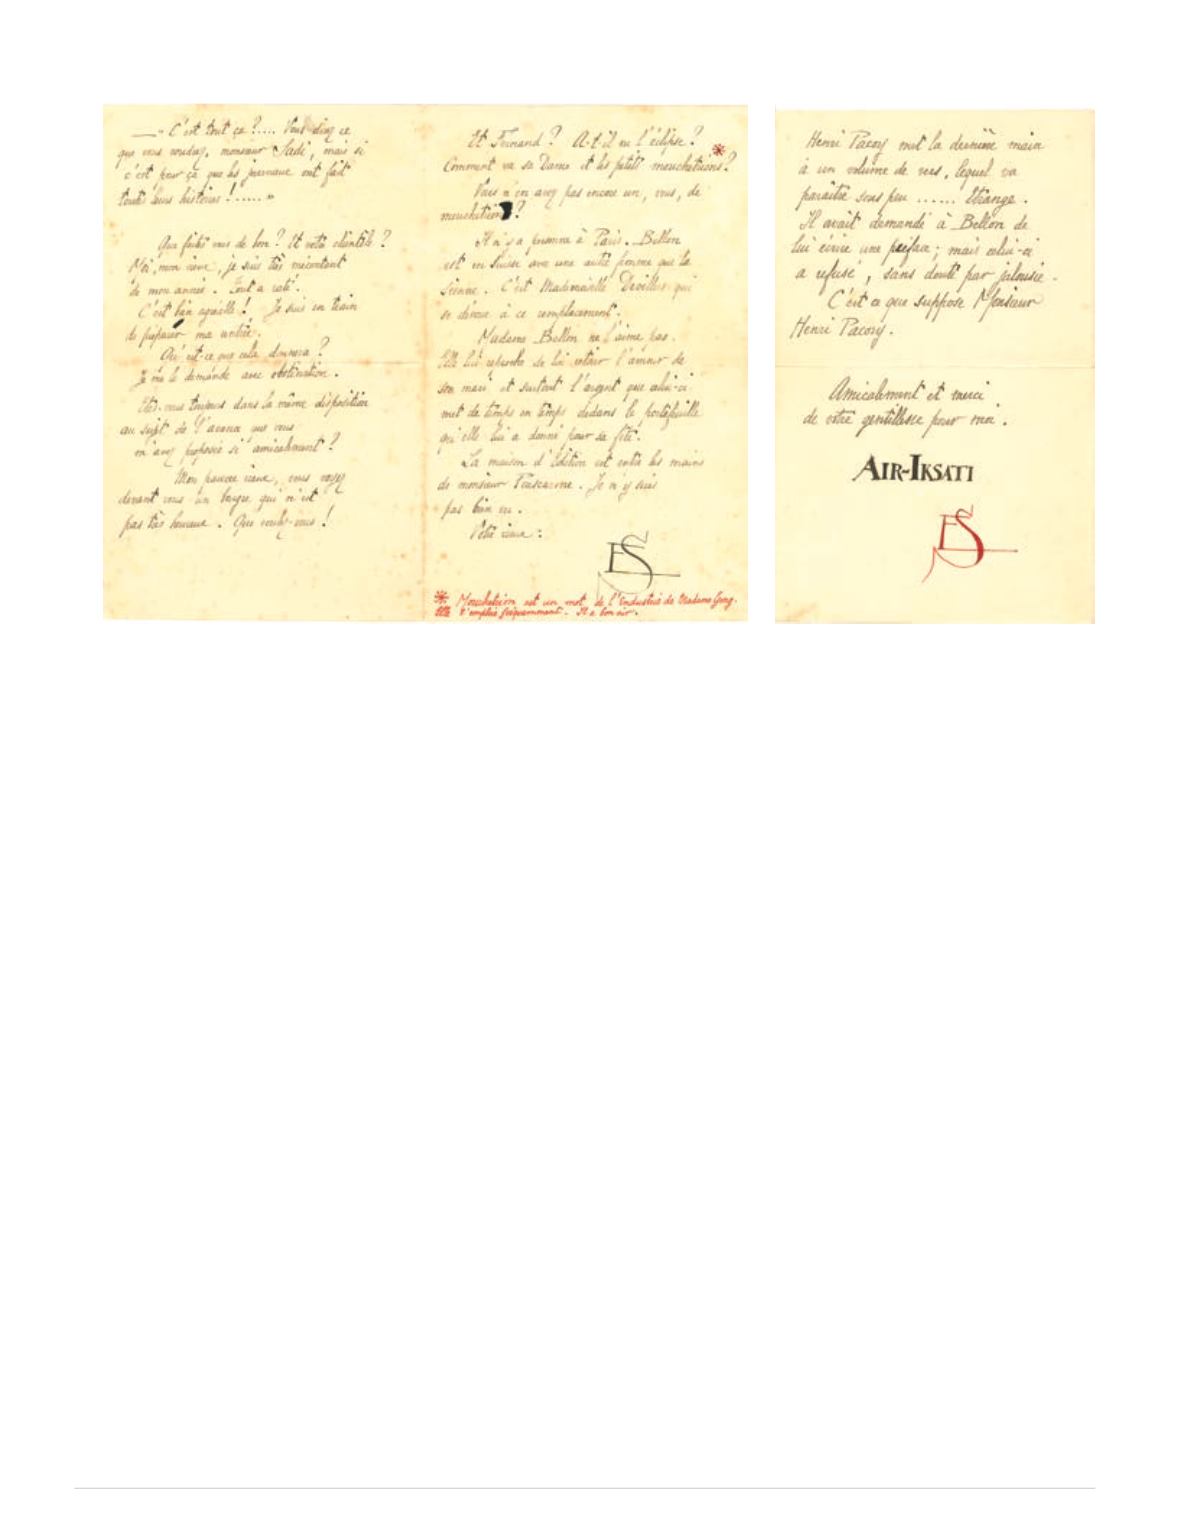 — « C'est tout ça ?.... Vous direz ce
que vous voudrez, monsieur Sadi, mais si
c'est pour ça que les journaux ont fait
toutes leurs histoires !...... »
Que faites vous de bon ? Et votre clientèle ?
Moi, mon vieux, je suis très mécontent
de mon année. Tout a raté.
C'est bien agréable ! Je suis en train
de préparer ma rentrée.
Qu'est-ce que cela donnera ?
Je me le demande avec obstination.
Etes-vous toujours dans la même disposition
au sujet de l'avance que vous
m'avez proposée si amicalement ?
Mon pauvre vieux, vous voyez
devant vous un bougre qui n'est
pas très heureux. Que voulez-vous !
Et Fernand ? A-t-il vu l'éclipse ?
Comment va sa Dame et les petits mouchetrons* ?
Vous n'en avez pas encore un, vous, de
moucheton ?
Il n'y a personne à Paris. Bellon
est en Suisse avec une autre femme que la
sienne. C'est Mademoiselle Devillers qui
se dévoue à ce remplacement.
Madame Bellon ne l'aime pas.
Elle lui reproche de lui retirer l'amour de
son mari et surtout l'argent que celui-ci
met de temps en temps dedans le portefeuille
qu'elle lui a donné pour sa fête.
La maison d'Edition est entre les mains
de monsieur Je n'y suis
pas bien vu.
Votre vieux :
ES
* est un mot de l'industrie de Madame
Elle l'emploie fréquemment. Il a bon air.
Henri Pacory met la dernière main
à un volume de vers, lequel va
paraître sous peu ...... Etrange.
Il avait demandé à Bellon de
lui écrire une préface ; mais celui-ci
a refusé, sans doute par jalousie.
C'est ce que suppose Monsieur
Henri Pacory.
Amicalement et merci
de votre gentillesse pour moi.
AIR-IKSATI
ES